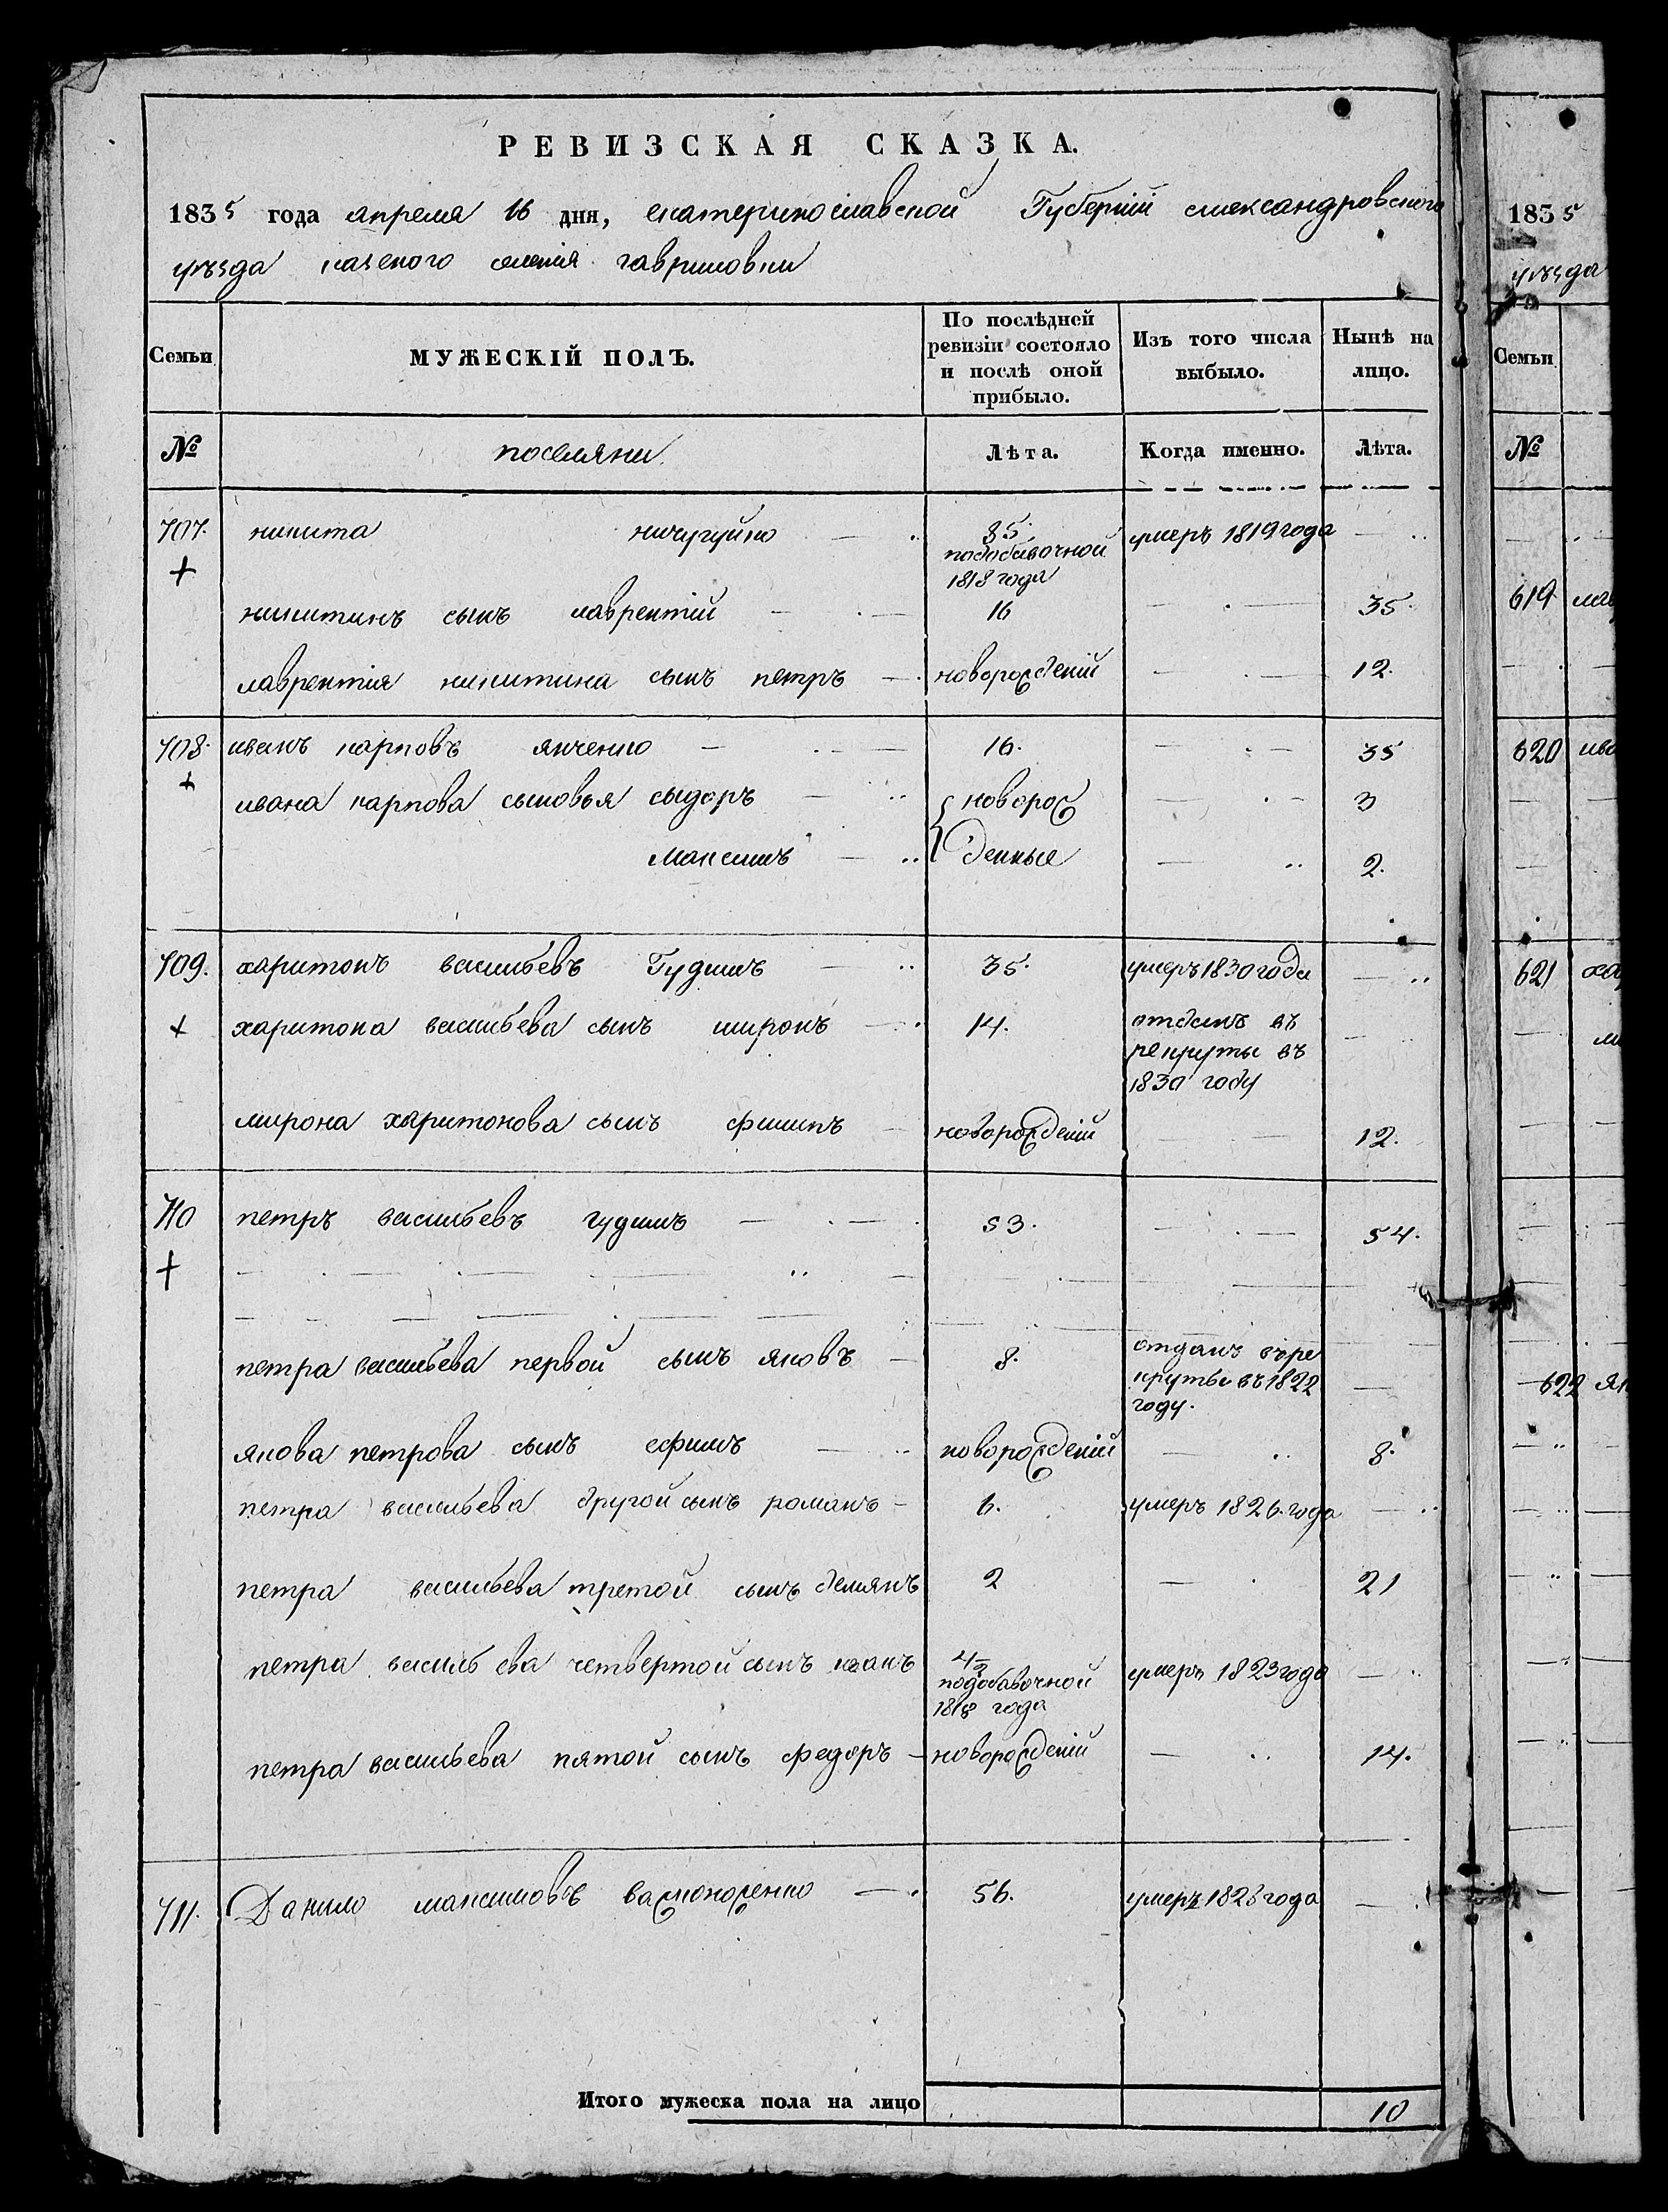 РЕВИЗСКАЯ СКАЗКА.
1835 года апреля 16 дня, екатеринославской Губернии александровского
уѣзда казеного селенія гавриловки
Семьи МУЖЕСКІЙ ПОЛЪ. По послѣдней ревизіи состояло и послѣ оной прибыло. Изъ того числа выбыло. Нынѣ на лицо.
№ поселяни Лѣта. Когда именно. Лѣта.
707. никита ничугуйко 85. умеръ 1819 года
подобавочной
1818 года
никитинъ сынъ лаврентій 16 35.
лаврентія никитина сынъ петръ новорожденій 12.
708. иванъ карповъ янченко 16. 35
ивана карпова сыновья сыдоръ новорож 3
максимъ денные 2.
709. харитонъ васильевъ Гудимъ 35. умеръ 1830 года
харитона васильева сынъ миронъ 14. отданъ въ
рекруты въ
1830 году
мирона харитонова сынъ филипъ новорожденій 12.
710 петръ васильевъ гудимъ 53. 54.
петра васильева первой сынъ яковъ 8. отданъ въ ре
круты въ 1822
году.
якова петрова сынъ ефимъ новорожденій 8.
петра васильева другой сынъ романъ 6. умеръ 1826. года
петра васильева третой сынъ демянъ 2 21
петра василь ева четвертой сынъ иванъ умеръ 1823 года
подобавочной
1818 года
петра васильева пятой сынъ федоръ новорожденій 14.
711. Данило максимовъ 56. умеръ 1823 года
Итого мужеска пола на лицо 10
1835
уѣзда
Семьи
№
619 лав
620 ива
621 ха
ми
622 як